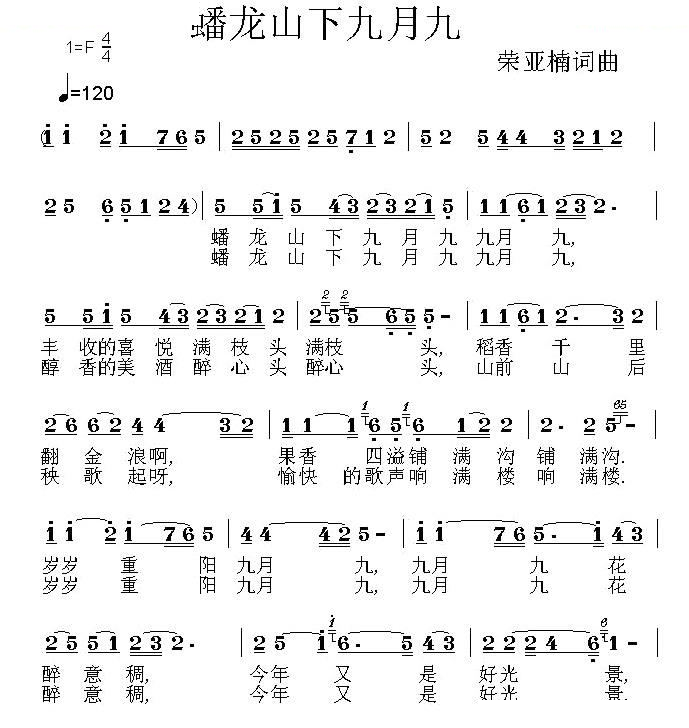 蟠龙山下九月九
1=F 4/4
荣亚楠词曲
♩=120
(1̇ 1̇ 2̇ 1̇ 7 6 5 | 2 5 2 5 2 5 2 5 7̣ 1 2 | 5 2 5 4 4 3 2 1 2 |
2 5 6̣ 5̣ 1 2 4) | 5 5 1̇ 5 4 3 2 3 2 1 5̣ | 1 1 6̣ 1 2 3 2 . |
蟠龙山下九月九 九月九,
蟠龙山下九月九 九月九,
5 5 1̇ 5 4 3 2 3 2 1 2 | 2 5 5 6̣ 5̣ 5̣ - | 1 1 6̣ 1 2 . 3 2 |
丰收的喜悦满枝头满枝头,稻香千里
醇香的美酒醉心头醉心头,山前山后
2 6 6 2 4 4 3 2 | 1 1 1 6̣ 5̣ 6̣ 1 2 2 | 2 . 2 5 - |
翻金浪啊,果香四溢铺满沟铺满沟.
秧歌起呀,愉快的歌声响满楼响满楼.
1̇ 1̇ 2̇ 1̇ 7 6 5 | 4 4 4 2 5 - | 1̇ 1̇ 7 6 5 . 1̇ 4 3 |
岁岁重阳九月九,九月九花
岁岁重阳九月九,九月九花
2 5 5 1 2 3 2 . | 2 5 1̇ 6 . 5 4 3 | 2 2 2 4 6̣ 1 - |
醉意稠,今年又是好光景,
醉意稠,今年又是好光景,